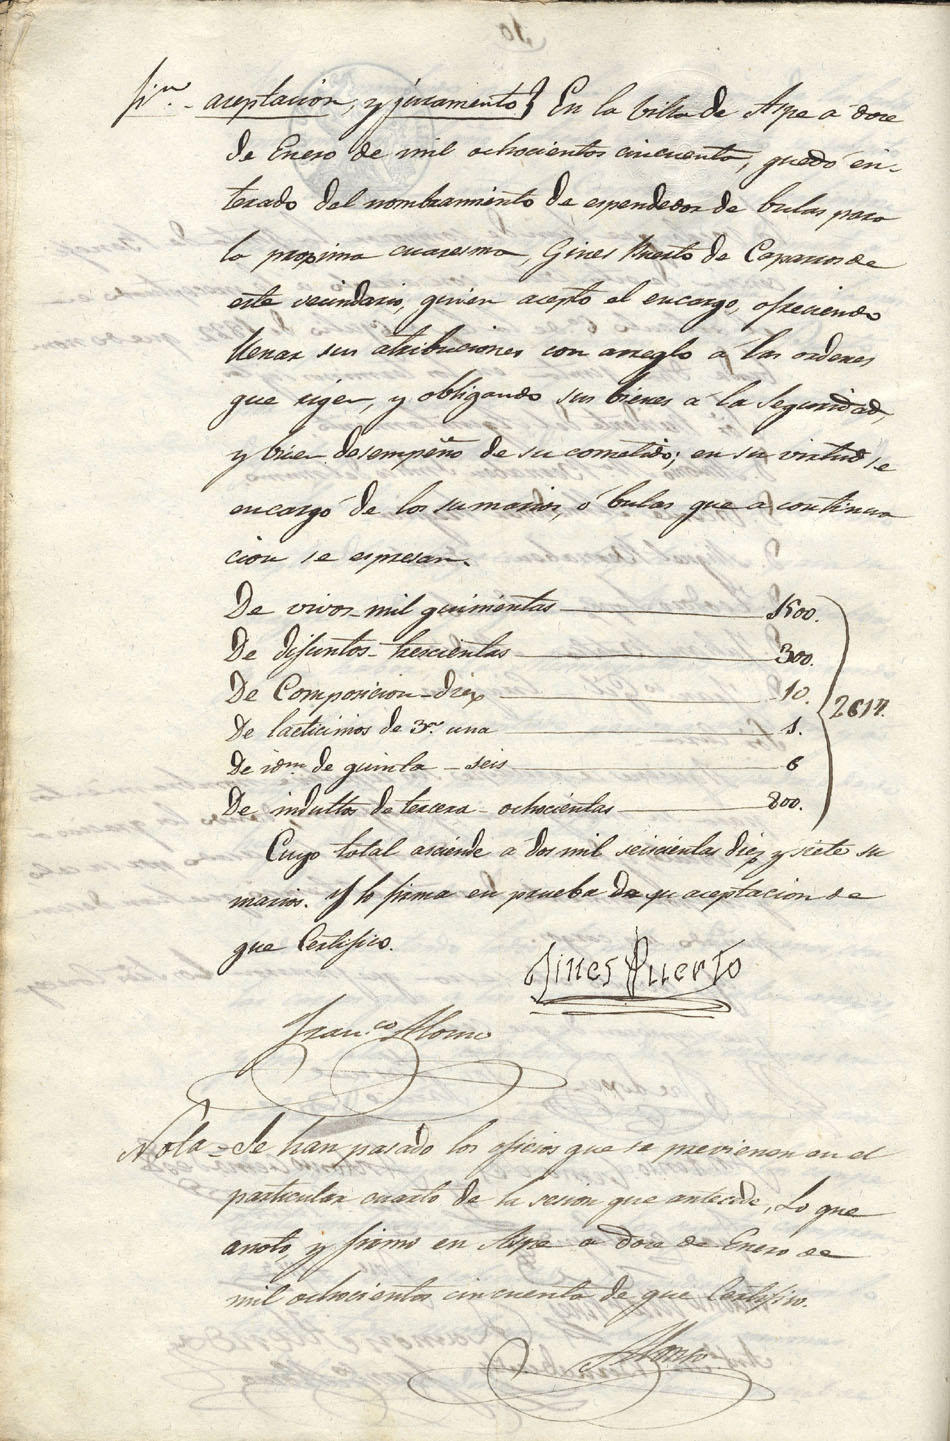 aceptacion, y juramento} En la billa de Aspe a doce
de Enero de mil ochocientos cincuenta, quedó en-
terado del nombramiento de espendedor de bulas para
la procsima cuaresma, Gines Puerto de Caparros de
este vecindario, quien acepto el encargo, ofreciendo
llenar sus atribuciones con arreglo á las ordenes
que rigen, y obligando sus bienes á la seguridad,
y bien desempeño de su cometido; en su virtud se
encargó de los sumarios, ó bulas que a continua
cion se espresan.
De vivos mil quinientas 1500.
De difuntos trescientas 300.
De Composicion diez 10.
De lacticinios de 3ª una 1.
De idm. de quinta seis 6
De indultos de tercera ochocientas 800.
2617.
Cuyo total asciende a dos mil seiscientas diez y siete su
marios. Y lo firma en prueba de su aceptacion de
que Certifico.
Gines Puerto
Franco. Alonso
Nota = Se han pasado los oficios que se previenen en el
particular cuarto de la sesion que antecede, Lo que
anoto, y firmo en Aspe a doce de Enero de
mil ochocientos cincuenta de que Certifico.
Alonso